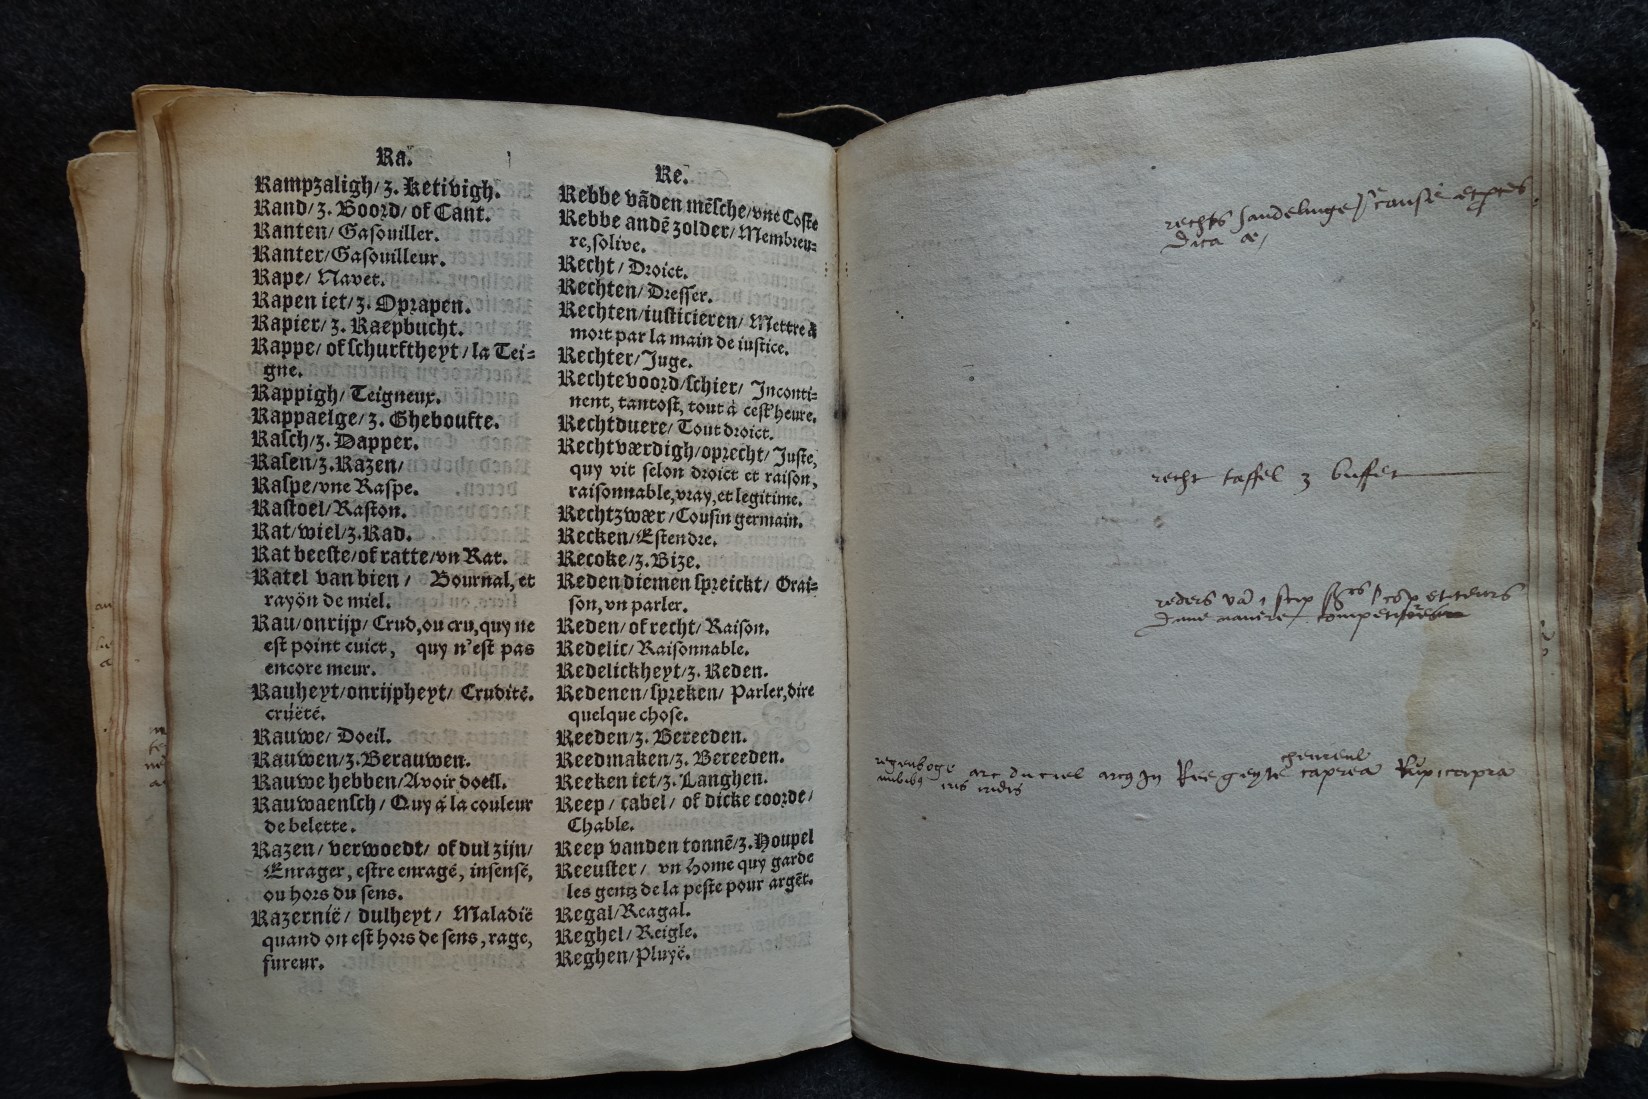 Ra.
Rampzaligh/z. Ketivigh.
Rand/z. Boord/ of Cant.
Ranten/ Gasouiller.
Ranter/Gasouilleur.
Rape/ Navet.
Rapen iet/z. Oprapen.
Rapier/z. Raepbucht.
Rappe/ of schurftheyt/la Tei=
gne.
Rappigh/ Teigneux.
Rappaelge/z. Gheboufte.
Rasch/z. Dapper.
Rasen/z.Razen/
Raspe/vne Raspe.
Rastoel/Raston.
Rat/wiel/z.Rad.
Rat beeste/of ratte/vn Rat.
Ratel van bien/ Bournal, et
rayön de miel.
Rau/onrijp/ Crud,ou cru,quy ne
est point cuict, quy n'est pas
encore meur.
Rauheyt/onrijpheyt/ Crudité.
crüëté.
Rauwe/ Doeil.
Rauwen/z.Berauwen.
Rauwe hebben/Avoir doeil.
Rauwaensch/ Quy á la couleur
de belette.
Razen/ verwoedt/ of dul zijn/
Enrager, estre enragé, insensé,
ou hors du sens.
Razernië/ dulheyt/ Maladië
quand on est hors de sens, rage,
fureur.
Re.
Rebbe vãden mẽsche/vne Coste
Rebbe andẽ zolder/Membreu=
re, solive.
Recht/ Droict.
Rechten/ Dresser.
Rechten/iusticieren/ Mettre à
mort par la main de iustice.
Rechter/Juge.
Rechtevoord/schier/ Inconti=
nent, tantost, tout à cest'heure.
Rechtduere/ Tout droict.
Rechtværdigh/oprecht/ Juste,
quy vit selon droict et raison,
raisonnable, vray, et legitime.
Rechtzwær/Cousin germain.
Recken/Estendre.
Recoke/z.Bize.
Reden diemen spreickt/ Orai=
son, vn parler.
Reden/of recht/Raison.
Redelic/Raisonnable.
Redelickheyt/z. Reden.
Redenen/spreken/ Parler, dire
quelque chose.
Reeden/z. Bereeden.
Reedmaken/z. Bereeden.
Reeken iet/z.Langhen.
Reep/ cabel/ of dicke coorde/
Chable.
Reep vanden tonnẽ/z.Houpel
Reeuster/ vn home quy garde
les gentz de la peste pour argẽt.
Regal/Reagal.
Reghel/Reigle.
Reghen/Pluyë.
rechts handelinge
dica
recht taffel z buffet
reders vã
d'une navire competiteurs
chevreul
regenboge arc du ciel arcus in Ree geyte caprea Rupicapra
nubibus iris iridis